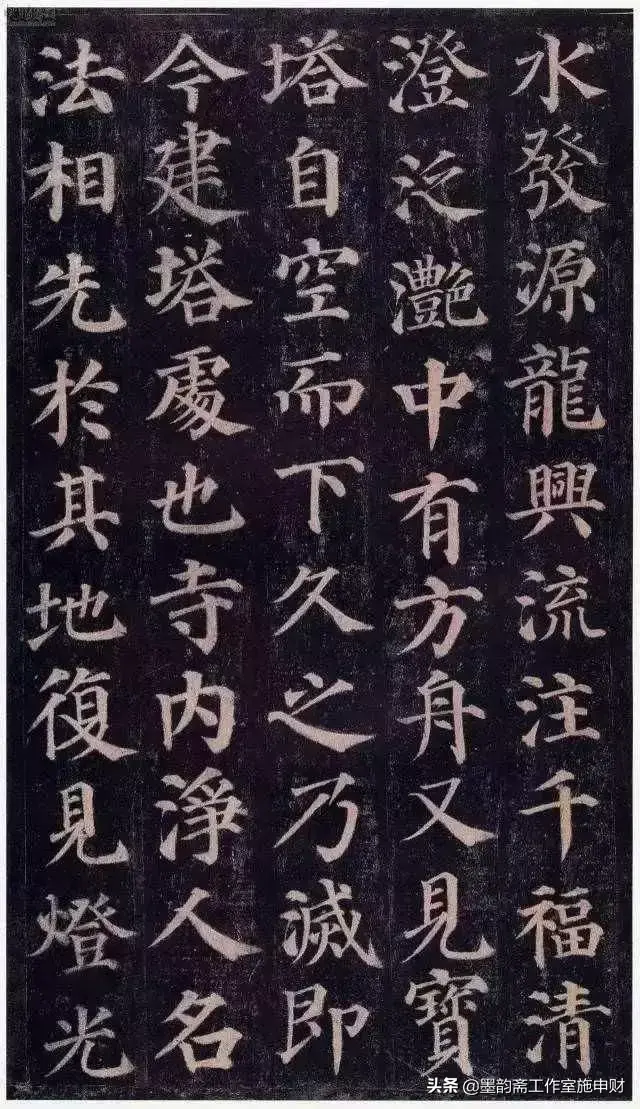 水發源龍興流注千福清
澄泛灔中有方舟又見寶
塔自空而下久之乃滅即
今建塔處也寺内淨人名
法相先於其地復見燈光
头条 @墨韵斋工作室施申财